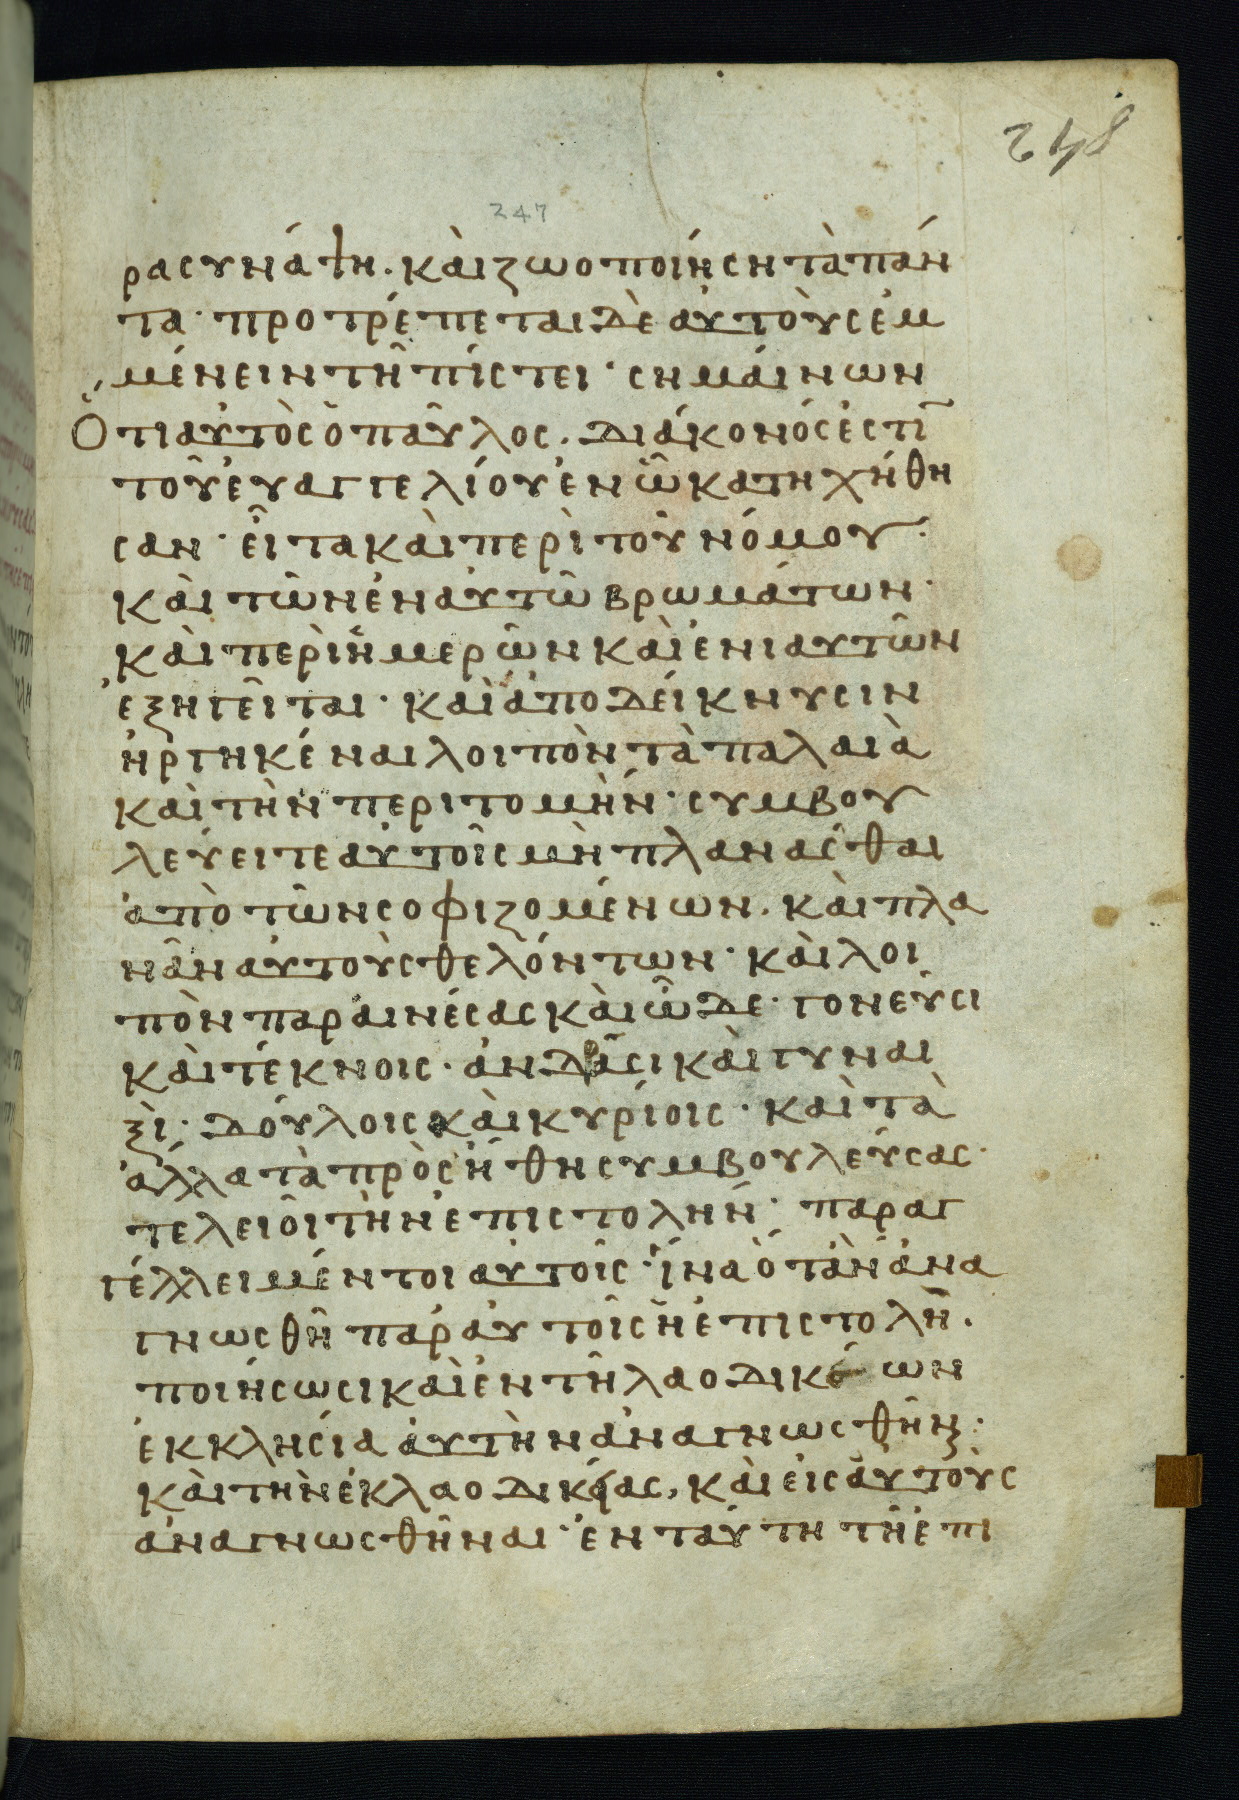 248
247
ρα συνάψη. καὶ ζωοποιήση τὰ πάν
τα· προτρέπεται δὲ αὐτοὺς ἐμ
μένειν τῆ πίστει· σημαίνων
Ὅτι αὐτὸς ὁ παῦλος. διάκονός ἐστῑ
τοῦ εὐαγγελίου ἐν ὧ κατηχήθη
σαν· εἶτα καὶ περὶ τοῦ νόμου·
καὶ τῶν ἐν αὐτῶ βρωμάτων·
καὶ περὶ ἡμερῶν καὶ ἐνιαυτῶν
ἐξηγεῖται· καὶ ἀποδείκνυσιν
ἠργηκέναι λοιπὸν τὰ παλαιὰ
καὶ τὴν περιτομήν· συμβου
λεύει τε αὐτοῖς μὴ πλανᾶσθαι
ἀπὸ τῶν σοφιζομένων. καὶ πλα
νᾶν αὐτοὺς θελόντων· καὶ λοι
πὸν παραινέσας καὶ ὧδε· γονεῦσι
καὶ τέκνοις· ἀνδράσι καὶ γυναι
ξὶ· δούλοις καὶ κυρίοις· καὶ τὰ
ἄλλα τὰ πρὸς ἤθη συμβουλεύσας·
τελειοῖ τὴν ἐπιστολήν· παραγ
γέλλει μέντοι αὐτοῖς· ἵνα ὁτὰν ἀνα
γνωσθῆ παρ' αὐτοῖς ἡ ἐπιστολὴ.
ποιήσωσι καὶ ἐν τῆ λαοδικέων
ἐκκλησία αὐτὴν ἀναγνωσθῆν;·
καὶ τὴν ἐκ λαοδικίας, καὶ εἰς αὐτοὺς
ἀναγνωσθῆναι· ἐν ταύτη τῆ ἐπι